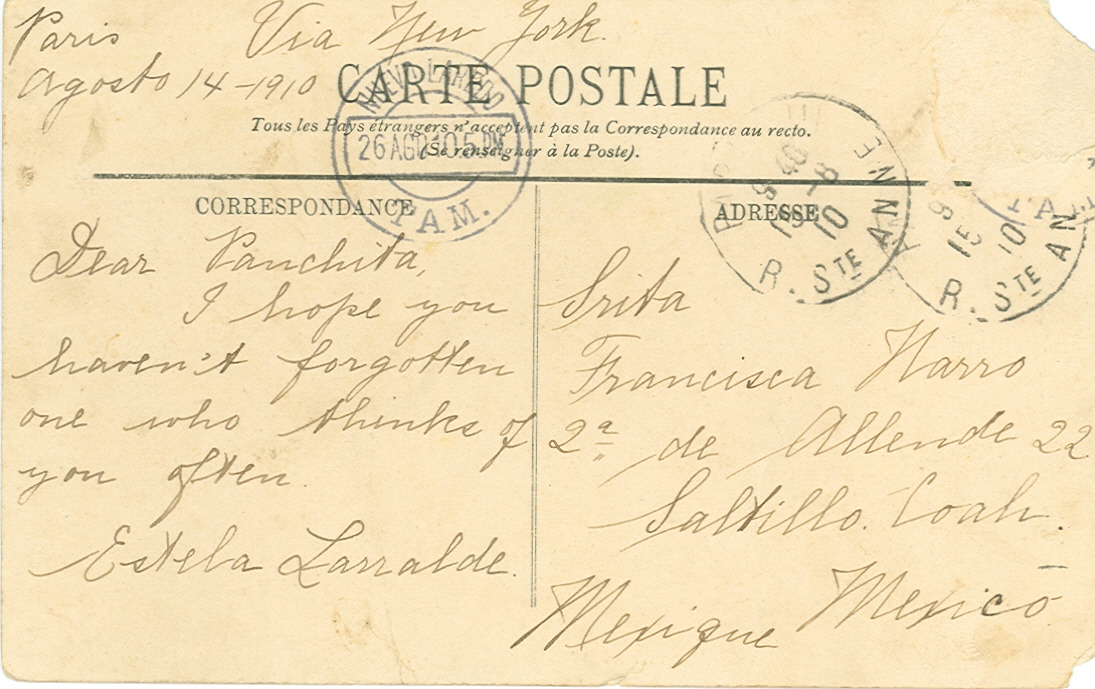 Paris Via New York.
Agosto 14-1910
CARTE POSTALE
Tous les Pays étrangers n'acceptent pas la Correspondance au recto.
(Se renseigner à la Poste).
NUEVO LAREDO
26 AGO 10 5 PM
TAM.
CORRESPONDANCE
ADRESSE
R. STE ANNE
15 -8
10
15
10
R. STE AN
Dear Panchita,
I hope you
haven't forgotten
one who thinks of
you often.
Estela Larralde.
Srita
Francisca Narro
2ª de Allende 22
Saltillo. Coah.
Mexico
Mexique